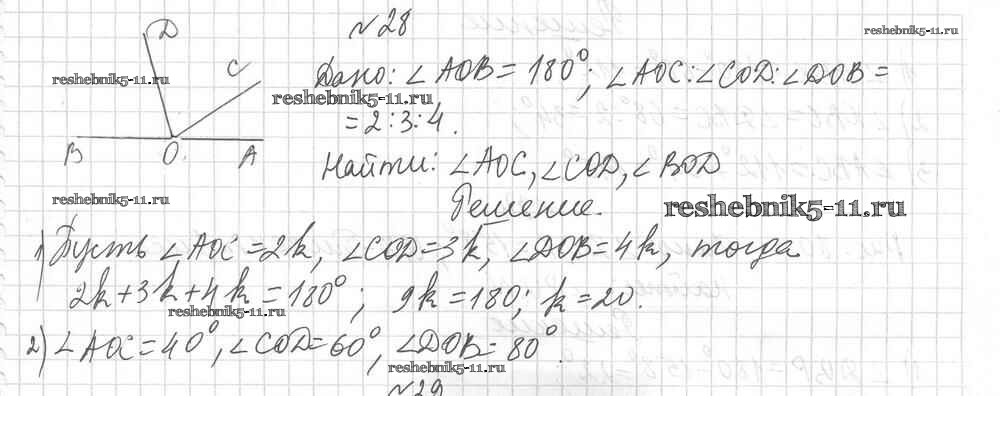 №28
reshebnik5-11.ru
D
C
reshebnik5-11.ru
Дано: ∠AOB = 180°; ∠AOC:∠COD:∠DOB =
reshebnik5-11.ru
= 2:3:4.
B O. A
Найти: ∠AOC, ∠COD, ∠BOD
reshebnik5-11.ru
Решение.
reshebnik5-11.ru
1) Пусть ∠AOC = 2k, ∠COD = 3k, ∠DOB = 4k, тогда
2k + 3k + 4k = 180°; 9k = 180; k = 20.
reshebnik5-11.ru
2) ∠AOC = 40°, ∠COD = 60°, ∠DOB = 80°.
reshebnik5-11.ru
№29